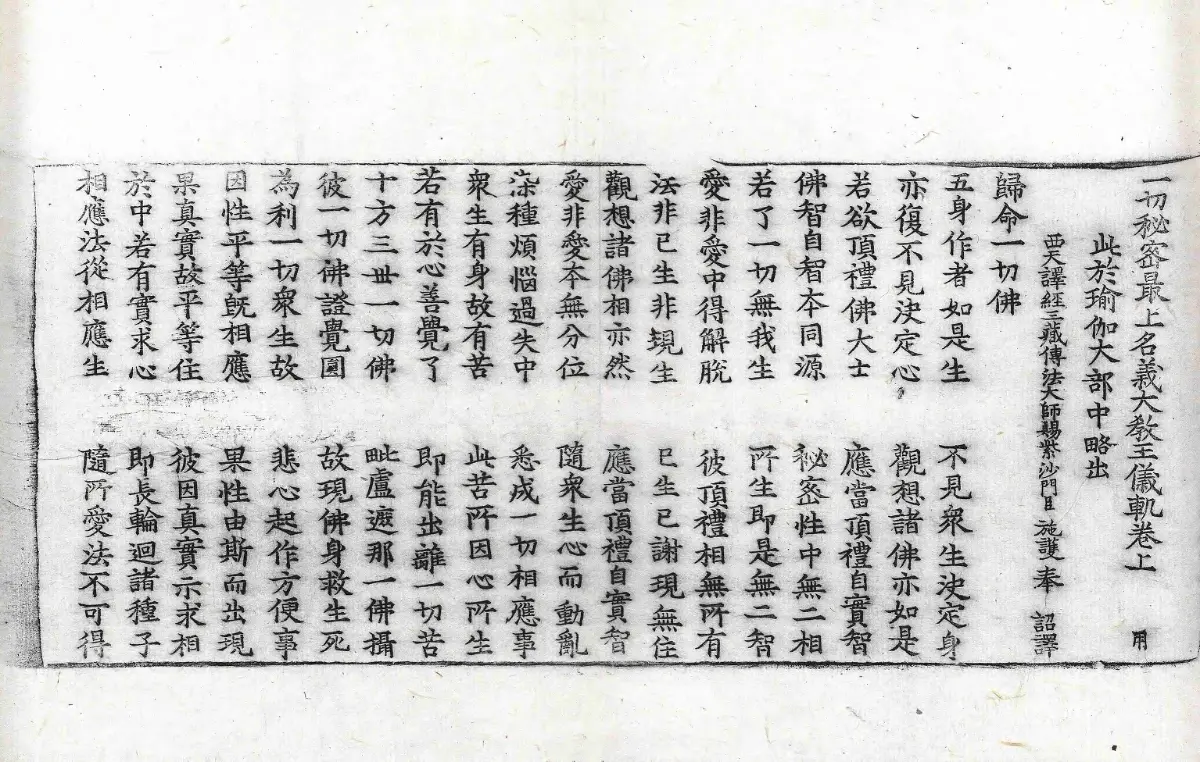 一切秘密最上名義大教王儀軌卷上 用
此於瑜伽大部中略出
西天譯經三藏傳法大師賜紫沙門臣施護奉 詔譯
歸命一切佛
五身作者如是生 不見衆生決定身
亦復不見決定心 觀想諸佛亦如是
若欲頂禮佛大士 應當頂禮自實智
佛智自智本同源 秘密性中無二相
若了一切無我生 所生即是無二智
愛非愛中得解脫 彼頂禮相無所有
法非已生非現生 已生已謝現無住
觀想諸佛相亦然 應當頂禮自實智
愛非愛本無分位 隨衆生心而動亂
染種煩惱過失中 悉成一切相應事
衆生有身故有苦 此苦所因心所生
若有於心善覺了 即能出離一切苦
十方三世一切佛 毗盧遮那一佛攝
彼一切佛證覺圓 故現佛身救生死
為利一切衆生故 悲心起作方便事
因性平等旣相應 果性由斯而出現
果真實故平等住 彼因真實示求相
於中若有實求心 即長輪迴諸種子
相應法從相應生 隨所愛法不可得